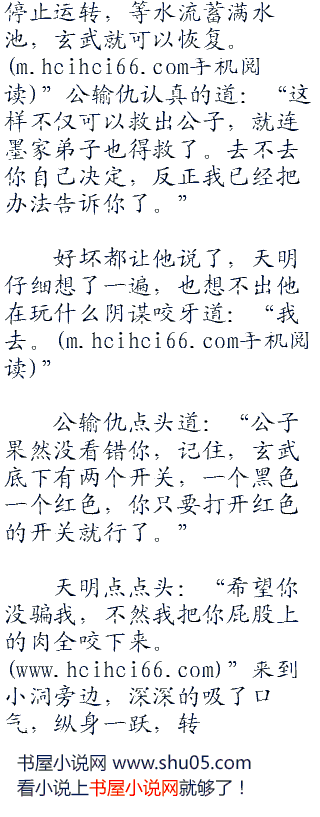 停止运转，等水流蓄满水
池，玄武就可以恢复。
(m.hcihci66.com手机阅
读)”公输仇认真的道：“这
样不仅可以救出公子，就连
墨家弟子也得救了。去不去
你自己决定，反正我已经把
办法告诉你了。”
好坏都让他说了，天明
仔细想了一遍，也想不出他
在玩什么阴谋咬牙道：“我
去。(m.hcihci66.com手机阅
读)”
公输仇点头道：“公子
果然没看错你，记住，玄武
底下有两个开关，一个黑色
一个红色，你只要打开红色
的开关就行了。”
天明点点头：“希望你
没骗我，不然我把你屁股上
的肉全咬下来。
(www.hcihci66.com)”来到
小洞旁边，深深的吸了口
气，纵身一跃，转
书屋小说网 www.shu05.com
看小说上书屋小说网就够了！